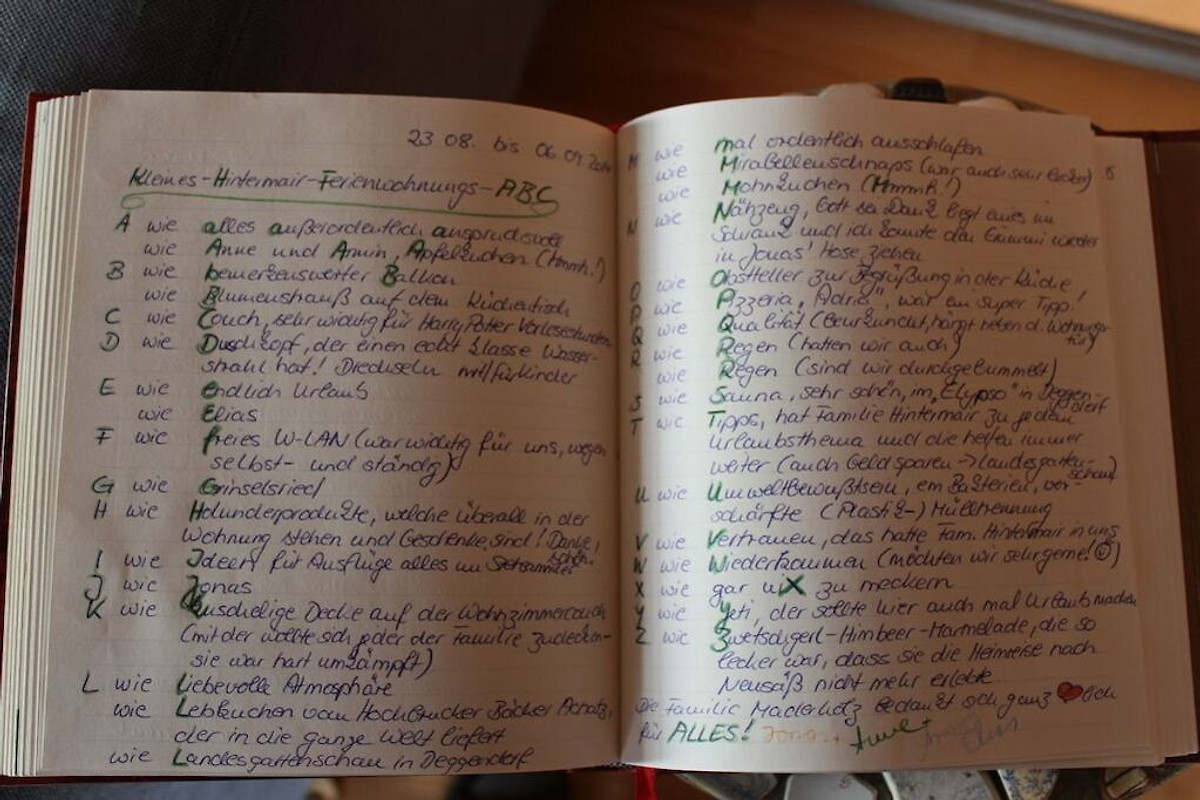 23 08. bis 06 09. 2014
Kleines-Hintermair-Ferienwohnungs-ABC
A wie alles außerordentlich anspruchsvoll
wie Anne und Armin, Apfelkuchen (Hmmh!)
B wie bemerkenswerter Balkon
wie Blumenstrauß auf dem Küchentisch
C wie Couch, sehr wichtig für Harry Potter Vorlesestunden
D wie Duschkopf, der einen echt klasse Wasser-
strahl hat! Drechseln mit/für Kinder
E wie endlich Urlaub
wie Elias
F wie freies W-LAN (war wichtig für uns, wegen
selbst- und ständig)
G wie Grinselsried
H wie Holunderprodukte, welche überall in der
Wohnung stehen und Geschenke sind! Danke,
schön!
I wie Ideen für Ausflüge alles im
J wie Jonas
K wie Kuschelige Decke auf der Wohnzimmercouch
(mit der wollte sich jeder der Familie zudecken-
sie war hart umkämpft)
L wie Liebevolle Atmosphäre
wie Lebkuchen vom Hochbrucker Bäcker
der in die ganze Welt liefert
wie Landesgartenschau in Deggendorf
M wie mal ordentlich ausschlafen
wie Mirabellenschnaps (war auch sehr lecker)
wie Mohnkuchen (Hmmh!)
N wie Nähzeug, Gott sei Dank liegt eines im
Schrank und ich konnte den Gummi wieder
in Jonas' Hose ziehen
O wie Obstteller zur Begrüßung in der Küche!
P wie Pizzeria "Adria", war ein super Tipp!
Q wie Qualität (beurkundet, hängt neben d. Wohnungs-
tür)
R wie Regen (hatten wir auch)
wie Regen (sind wir durchgebummelt)
S wie Sauna, sehr schön, im "Elypso" in Deggen-
dorf
T wie Tipps, hat Familie Hintermair zu jedem
Urlaubsthema und die helfen immer
weiter (auch Geld sparen -> Landesgarten-
schau)
U wie Umweltbewußtsein, ein Bakterien, ver-
schärfte (Plastik-) Mülltrennung
V wie Vertrauen, das hatte Fam. Hintermair in uns
W wie Wiederkommen (möchten wir sehr gerne! ☺)
X wie gar niX zu meckern
Y wie Yeti, der sollte hier auch mal Urlaub machen
Z wie Zwetschgerl-Himbeer-Marmelade, die so
lecker war, dass sie die Heimreise nach
Neusäß nicht mehr erlebte
Die Familie Maderholz bedankt sich ganz ❤lich
für ALLES! Jonas + Anne + Armin Elias